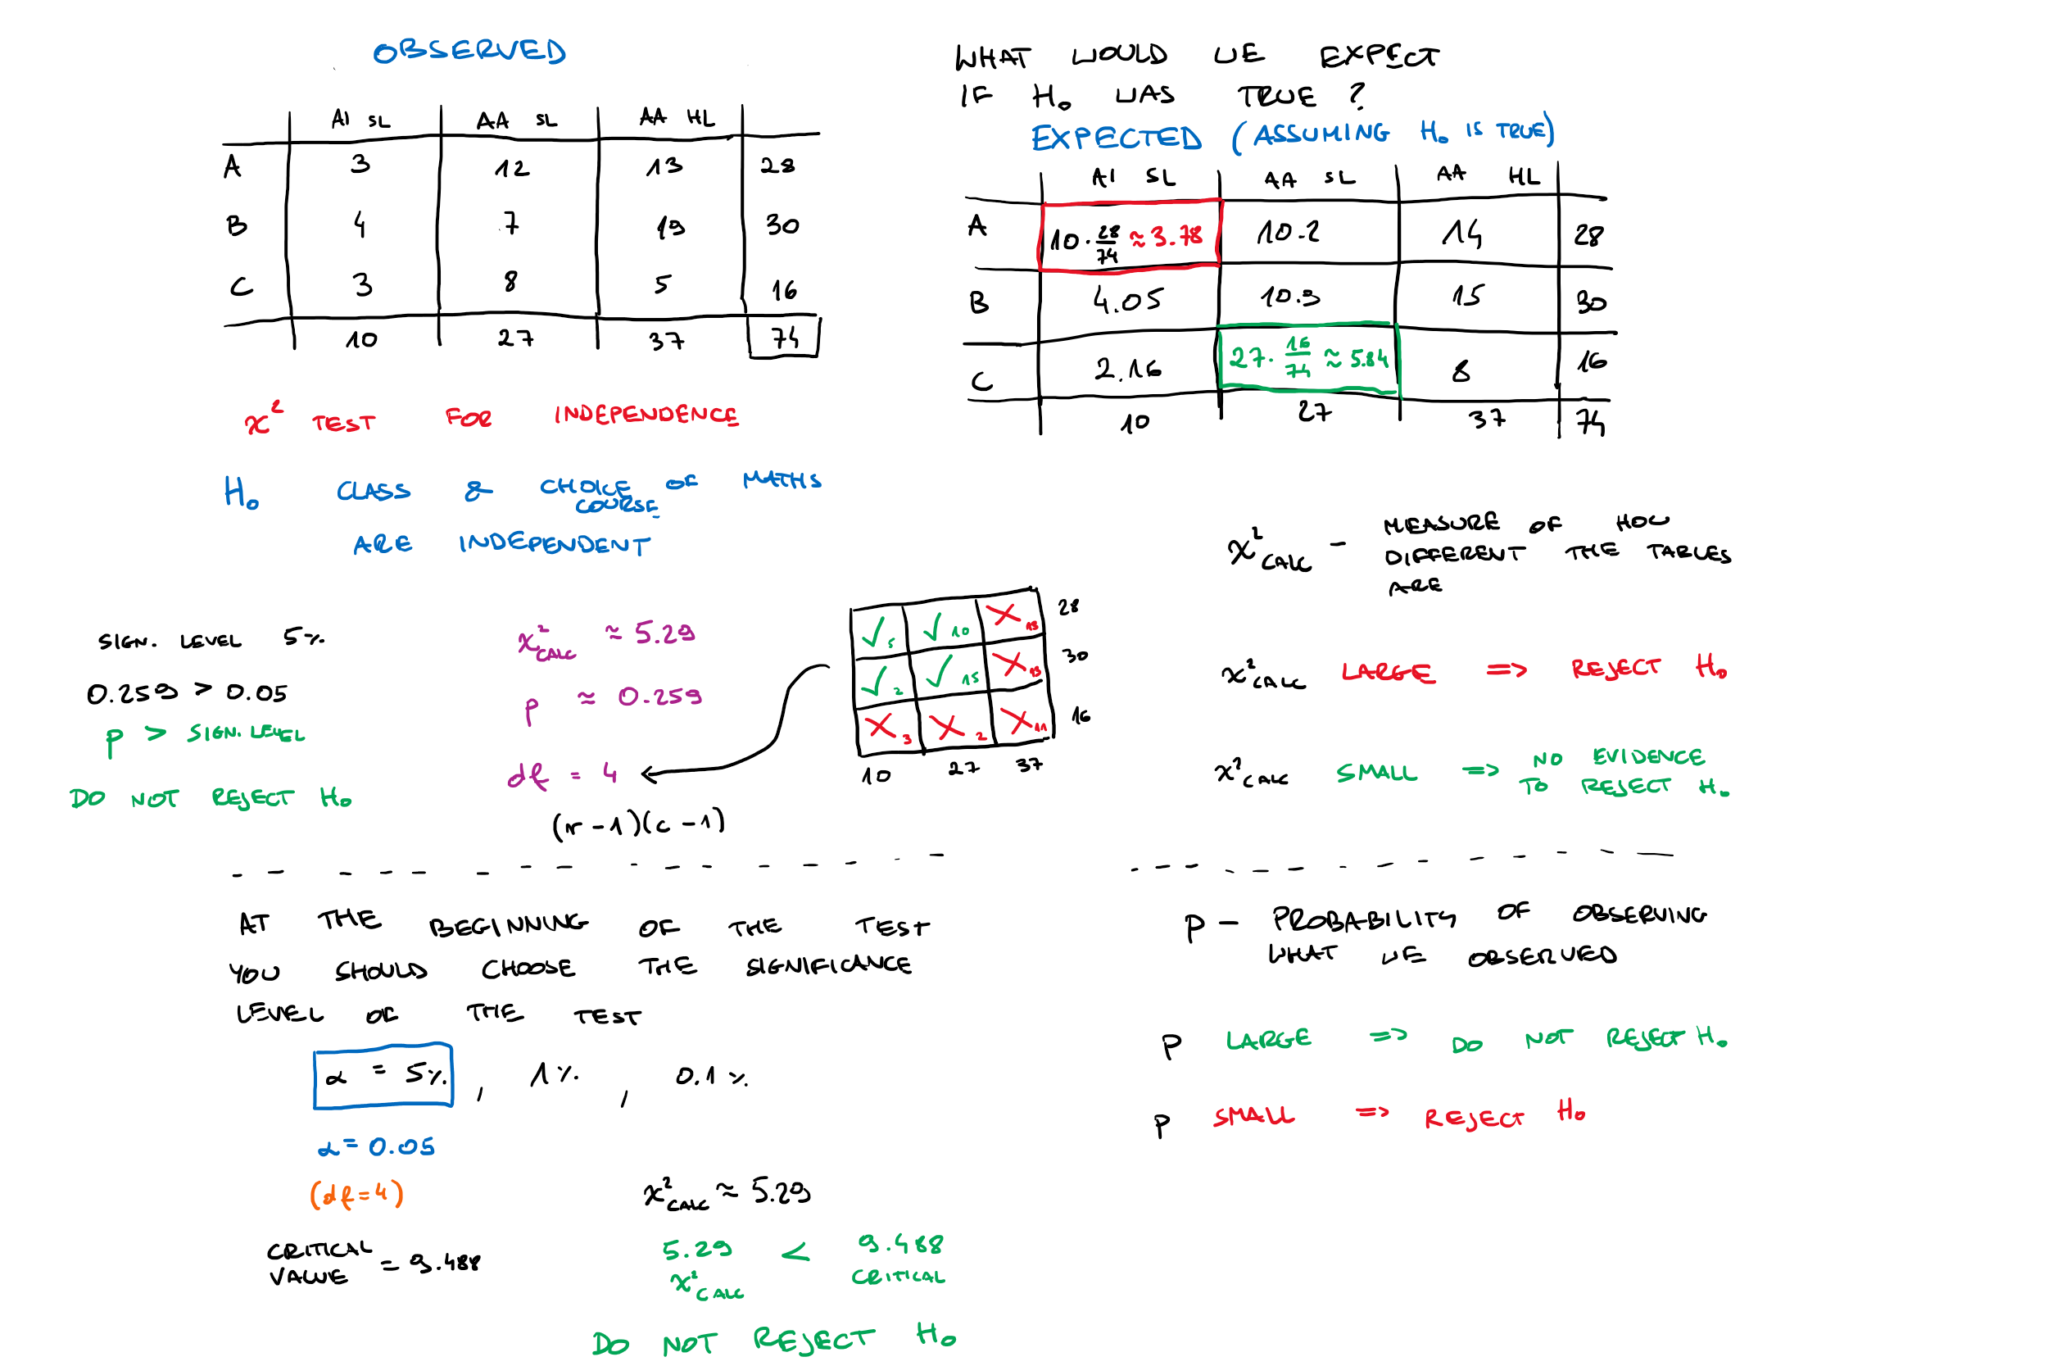 OBSERVED
AI SL AA SL AA HL
A 3 12 13 28
B 4 7 19 30
C 3 8 5 16
10 27 37 74
χ² TEST FOR INDEPENDENCE
H₀ CLASS & CHOICE OF MATHS
COURSE
ARE INDEPENDENT
WHAT WOULD WE EXPECT
IF H₀ WAS TRUE ?
EXPECTED (ASSUMING H₀ IS TRUE)
AI SL AA SL AA HL
A 10 · 28/74 ≈ 3.78 10.2 14 28
B 4.05 10.9 15 30
C 2.16 27 · 16/74 ≈ 5.84 8 16
10 27 37 74
χ²CALC - MEASURE OF HOW
DIFFERENT THE TABLES
ARE
χ²CALC LARGE => REJECT H₀
χ²CALC SMALL => NO EVIDENCE
TO REJECT H₀
SIGN. LEVEL 5%
0.259 > 0.05
p > SIGN. LEVEL
DO NOT REJECT H₀
χ²CALC ≈ 5.29
p ≈ 0.259
df = 4
(r-1)(c-1)
✓5 ✓10 ✗13 28
✓2 ✓15 ✗13 30
✗3 ✗2 ✗11 16
10 27 37
AT THE BEGINNING OF THE TEST
YOU SHOULD CHOOSE THE SIGNIFICANCE
LEVEL OF THE TEST
α = 5% , 1% , 0.1%
α = 0.05
(df=4)
CRITICAL
VALUE = 9.488
χ²CALC ≈ 5.29
5.29 < 9.488
χ²CALC CRITICAL
DO NOT REJECT H₀
P - PROBABILITY OF OBSERVING
WHAT WE OBSERVED
P LARGE => DO NOT REJECT H₀
P SMALL => REJECT H₀